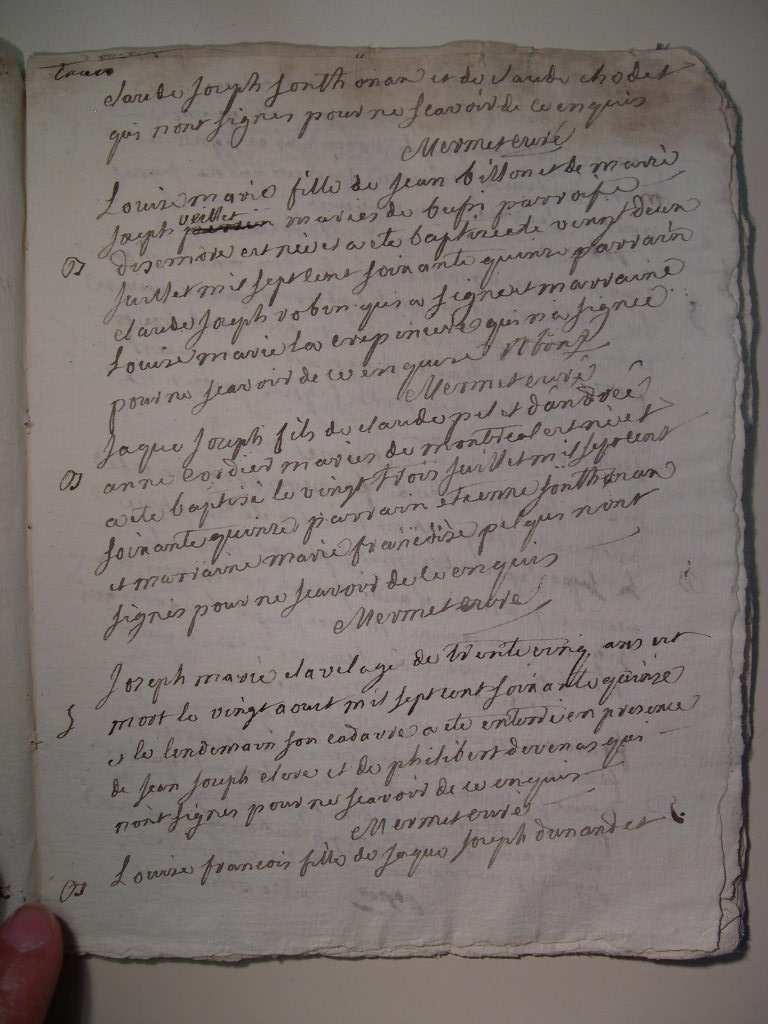 claude Joseph Sonthonax et de claude chodet
qui nont signes pour ne scavoir de ce enquis
Mermet curé
Louise marie fille de Jean billon et de marie
Joseph veillet maries de bussi parroisse
B disemore est née et a ete baptisée le vingt deux
Juillet mil sept cent soixante quinze parrain
claude Joseph robin qui a signe et marraine
Louise marie la crepinere qui n'a signée
pour ne scavoir de ce enquise Robin
Mermet curé
Jaque Joseph fils de claude pel et d'andreé
B anne cordier maries de montreal est né et
a ete baptisé le vingt trois Juillet mil sept cent
soixante quinze parrain etienne sonthonax
et marraine marie françoise pel qui n'ont
signés pour ne scavoir de ce enquis
Mermet curé
Joseph marie clavel agé de trente cinq ans est
S mort le vingt aout mil sept cent soixante quinze
et le lendemain son cadavre a ete enterré en presence
de Jean Joseph eleve et de philibert devenas qui
n'ont signes pour ne scavoir de ce enquis
Mermet curé
B Louise francois fille de Jaque Joseph dunand et